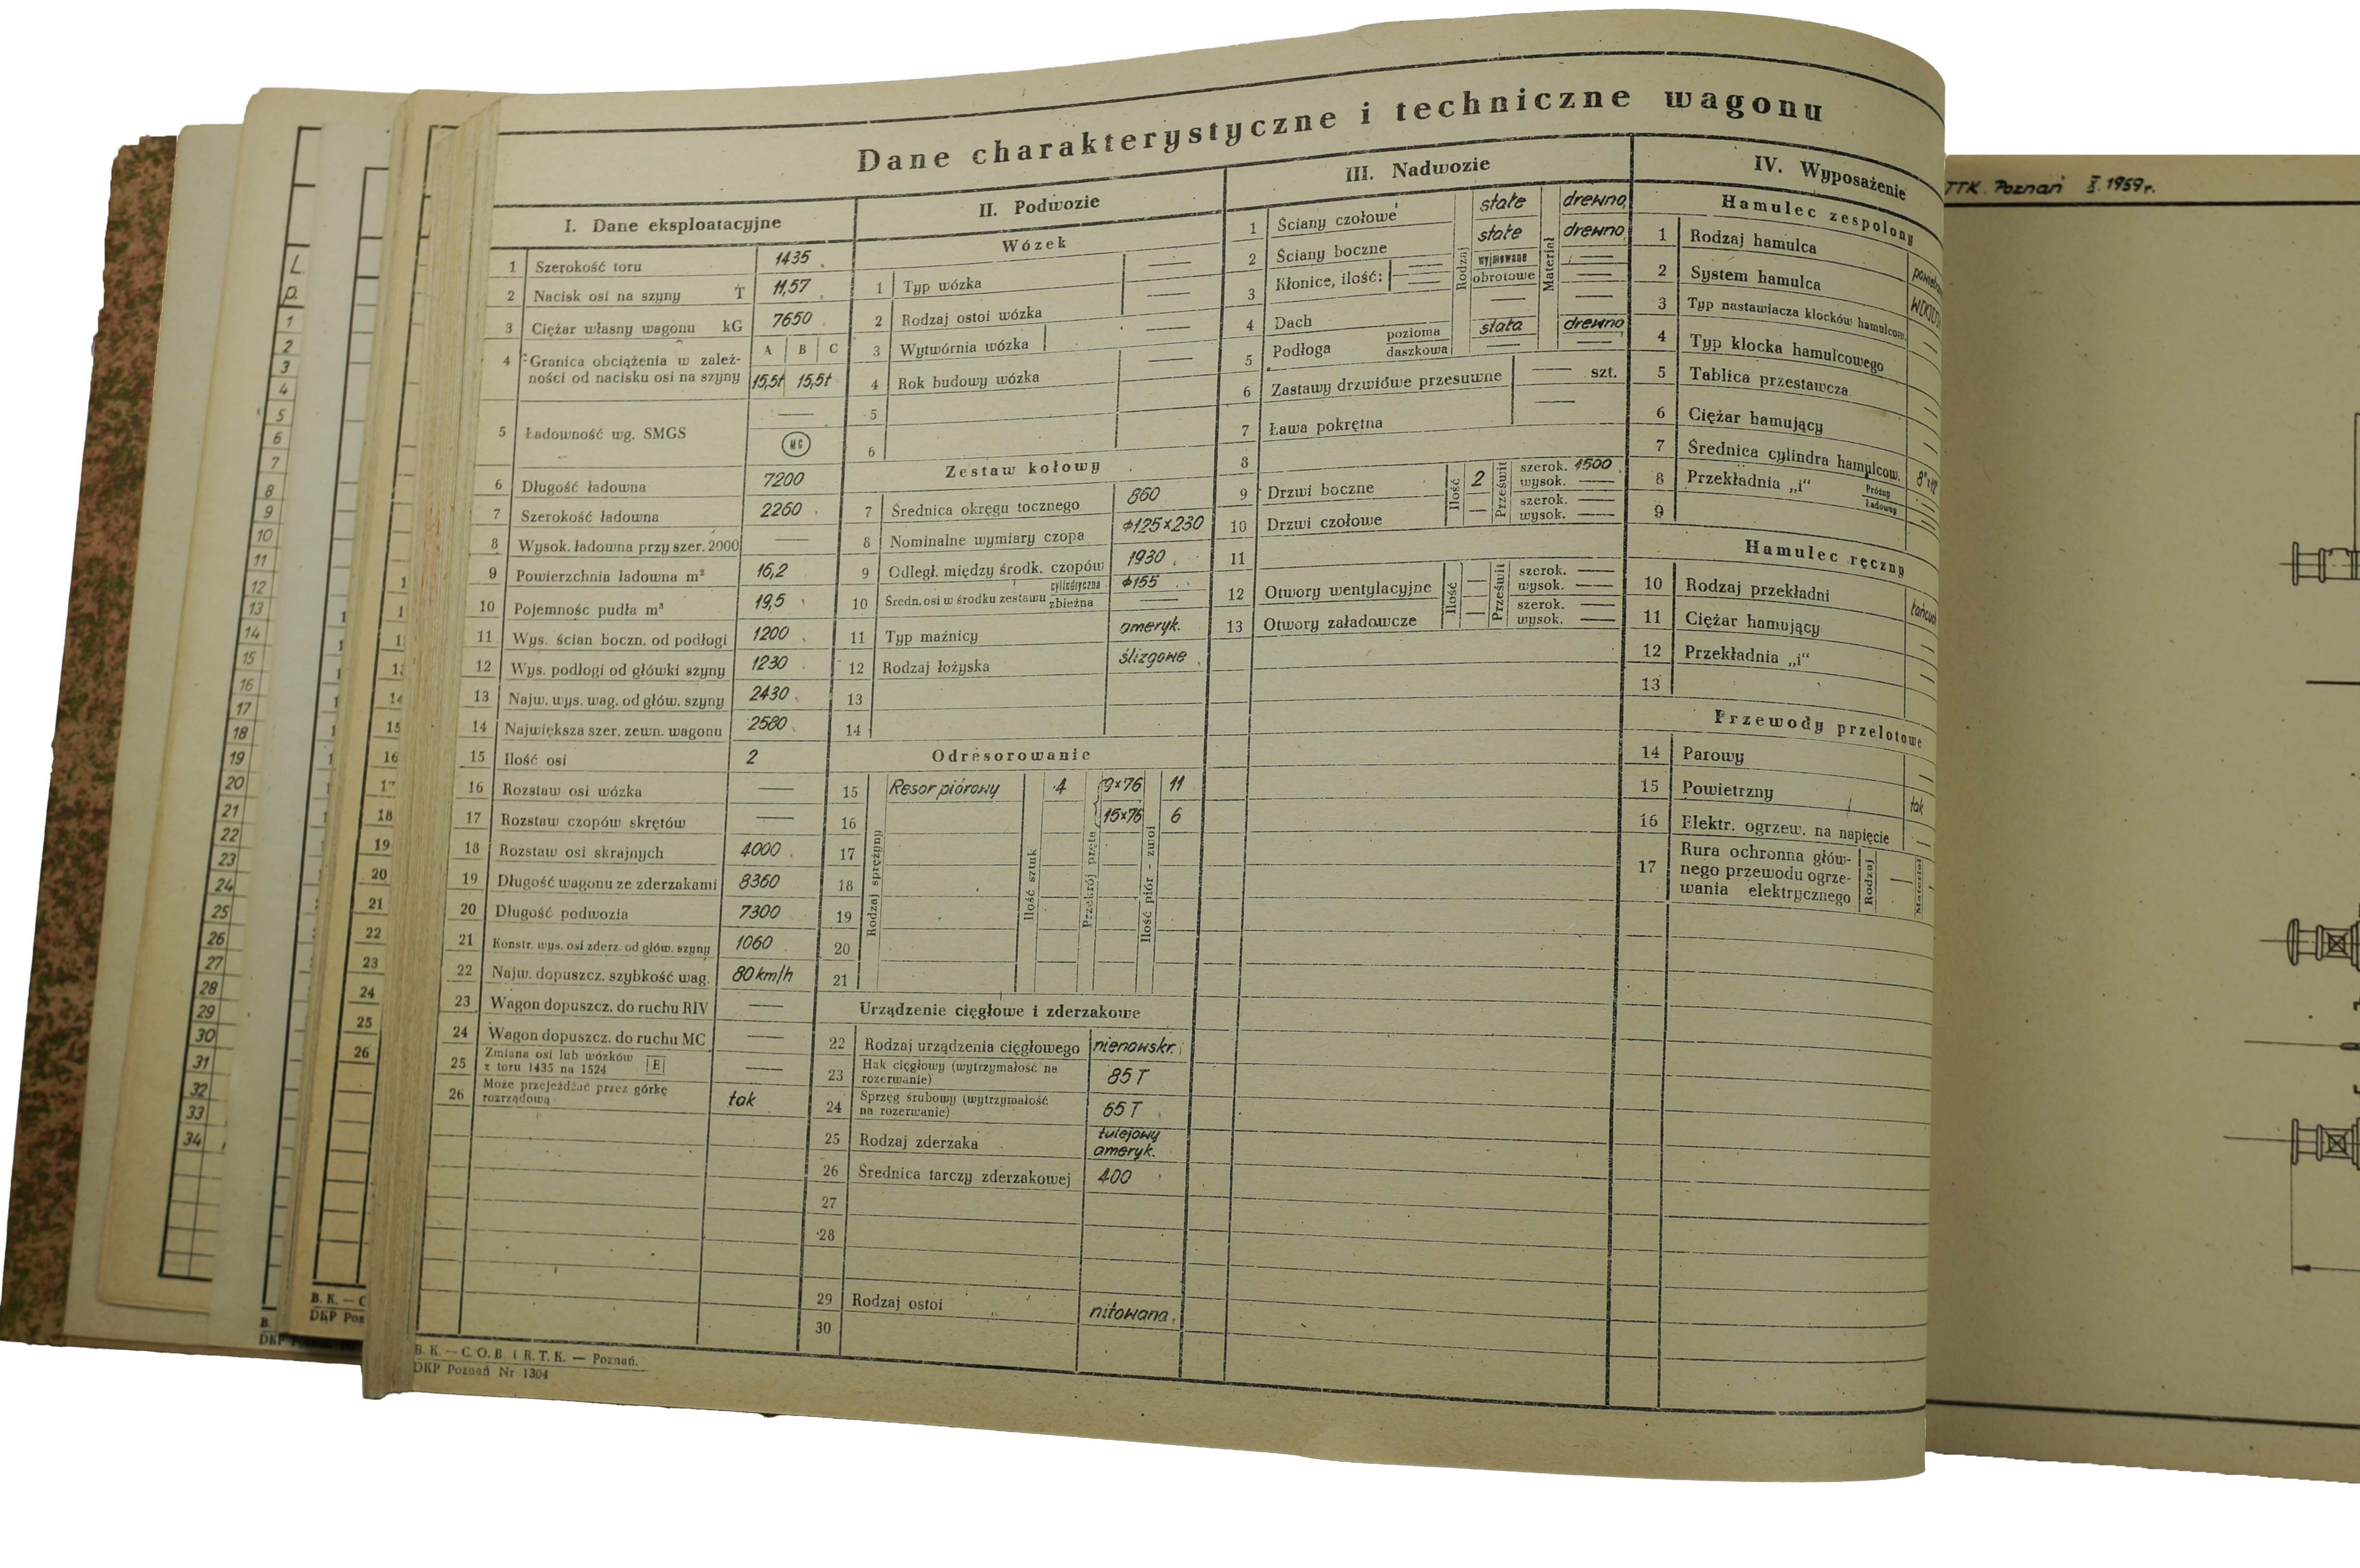 Dane charakterystyczne i techniczne wagonu
I. Dane eksploatacyjne
1 Szerokość toru 1435
2 Nacisk osi na szyny T 11,57
3 Ciężar własny wagonu kG 7650
4 Granica obciążenia w zależ- A B C
ności od nacisku osi na szyny 15,5t 15,5t
5 Ładowność wg. SMGS — MC
6 Długość ładowna 7200
7 Szerokość ładowna 2260
8 Wysok. ładowna przy szer. 2000 —
9 Powierzchnia ładowna m² 16,2
10 Pojemność pudła m³ 19,5
11 Wys. ścian boczn. od podłogi 1200
12 Wys. podłogi od główki szyny 1230
13 Najw. wys. wag. od głów. szyny 2430
14 Największa szer. zewn. wagonu 2580
15 Ilość osi 2
16 Rozstaw osi wózka —
17 Rozstaw czopów skrętów —
18 Rozstaw osi skrajnych 4000
19 Długość wagonu ze zderzakami 8360
20 Długość podwozia 7300
21 Konstr. wys. osi zderz. od głów. szyny 1060
22 Najw. dopuszcz. szybkość wag. 80 km/h
23 Wagon dopuszcz. do ruchu RIV —
24 Wagon dopuszcz. do ruchu MC —
25 Zmiana osi lub wózków
z toru 1435 na 1524 E —
26 Może przejeżdżać przez górkę
rozrządową tak
B. K. — C. O. B. i R. T. K. — Poznań.
DKP Poznań Nr 1304
II. Podwozie
Wózek
1 Typ wózka —
2 Rodzaj ostoi wózka —
3 Wytwórnia wózka —
4 Rok budowy wózka —
5
6
Zestaw kołowy
7 Średnica okręgu tocznego 860
8 Nominalne wymiary czopa φ125×230
9 Odległ. między środk. czopów 1930
10 Średn. osi w środku zestawu cylindryczna φ155
zbieżna —
11 Typ maźnicy ameryk.
12 Rodzaj łożyska ślizgowe
13
14
Odresorowanie
Rodzaj sprężyny
Ilość sztuk
Przekrój pręta
Ilość piór - zwoi
15 Resor piórowy 4 9×76 11
16 15×76 6
17
18
19
20
21
Urządzenie cięgłowe i zderzakowe
22 Rodzaj urządzenia cięgłowego nienawskr.
23 Hak cięgłowy (wytrzymałość na
rozerwanie) 85 T
24 Sprzęg śrubowy (wytrzymałość
na rozerwanie) 65 T
25 Rodzaj zderzaka tulejowy
ameryk.
26 Średnica tarczy zderzakowej 400
27
28
29 Rodzaj ostoi nitowana
30
III. Nadwozie
Rodzaj
Materiał
1 Ściany czołowe stałe drewno
2 Ściany boczne stałe drewno
3 Kłonice, ilość: — wyjmowane —
— obrotowe —
4 Dach — —
5 Podłoga pozioma stała drewno
daszkowa — —
6 Zastawy drzwiowe przesuwne — szt.
7 Ława pokrętna —
8
9 Drzwi boczne Ilość 2 Prześwit szerok. 1500
wysok. —
10 Drzwi czołowe — szerok. —
wysok. —
11
12 Otwory wentylacyjne Ilość — Prześwit szerok. —
wysok. —
13 Otwory załadowcze — szerok. —
wysok. —
IV. Wyposażenie
Hamulec zespolony
1 Rodzaj hamulca
2 System hamulca
3 Typ nastawiacza klocków hamulcow. —
4 Typ klocka hamulcowego
5 Tablica przestawcza —
6 Ciężar hamujący —
7 Średnica cylindra hamulcow.
8 Przekładnia „i" Próżny —
Ładowny —
9
Hamulec ręczny
10 Rodzaj przekładni
11 Ciężar hamujący —
12 Przekładnia „i" —
13
Przewody przelotowe
14 Parowy —
15 Powietrzny tak
16 Elektr. ogrzew. na napięcie —
17 Rura ochronna głów-
nego przewodu ogrze-
wania elektrycznego Rodzaj — Materiał
TTK. Poznań X. 1959r.
L.
p.
1
2
3
4
5
6
7
8
9
10
11
12
13
14
15
16
17
18
19
20
21
22
23
24
25
26
27
28
29
30
31
32
33
34
15
16
18
19
20
21
22
23
24
25
26
B. K. — C
DKP Poz